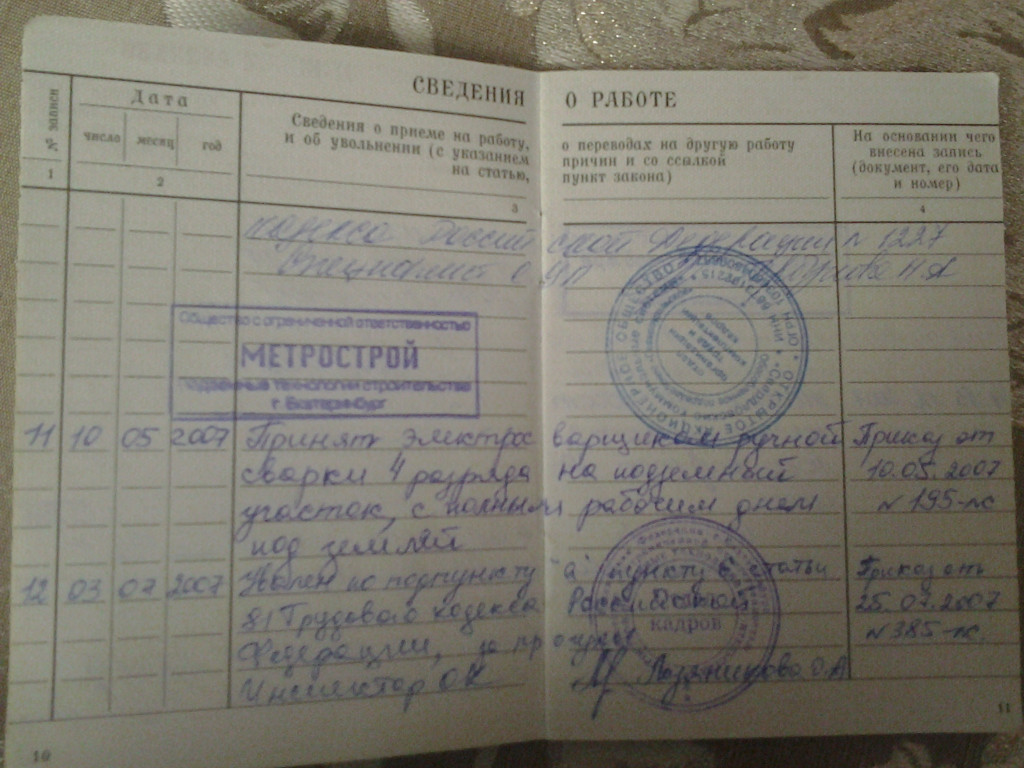 СВЕДЕНИЯ О РАБОТЕ
№ записи
Дата
число месяц год
Сведения о приеме на работу,
и об увольнении (с указанием
на статью,
о переводах на другую работу
причин и со ссылкой
пункт закона)
На основании чего
внесена запись
(документ, его дата
и номер)
1 2 3 4
кодекса Российской Федерации п 1227
Специалист ОУП
Общество с ограниченной ответственностью
МЕТРОСТРОЙ
подземные технологии строительства
г. Екатеринбург
11 10 05 2007 Принят электросварщиком ручной Приказ от
сварки 4 разряда на подземный 10.05.2007
участок, с полным рабочим днем № 195-лс
под землей
12 03 07 2007 Уволен по подпункту "а" пункту 6 статьи Приказ от
81 Трудового кодекса Российской 25.07.2007
Федерации, за прогулы № 385-лс
Инспектор ОК Позяникова О.А
кадров
10
11